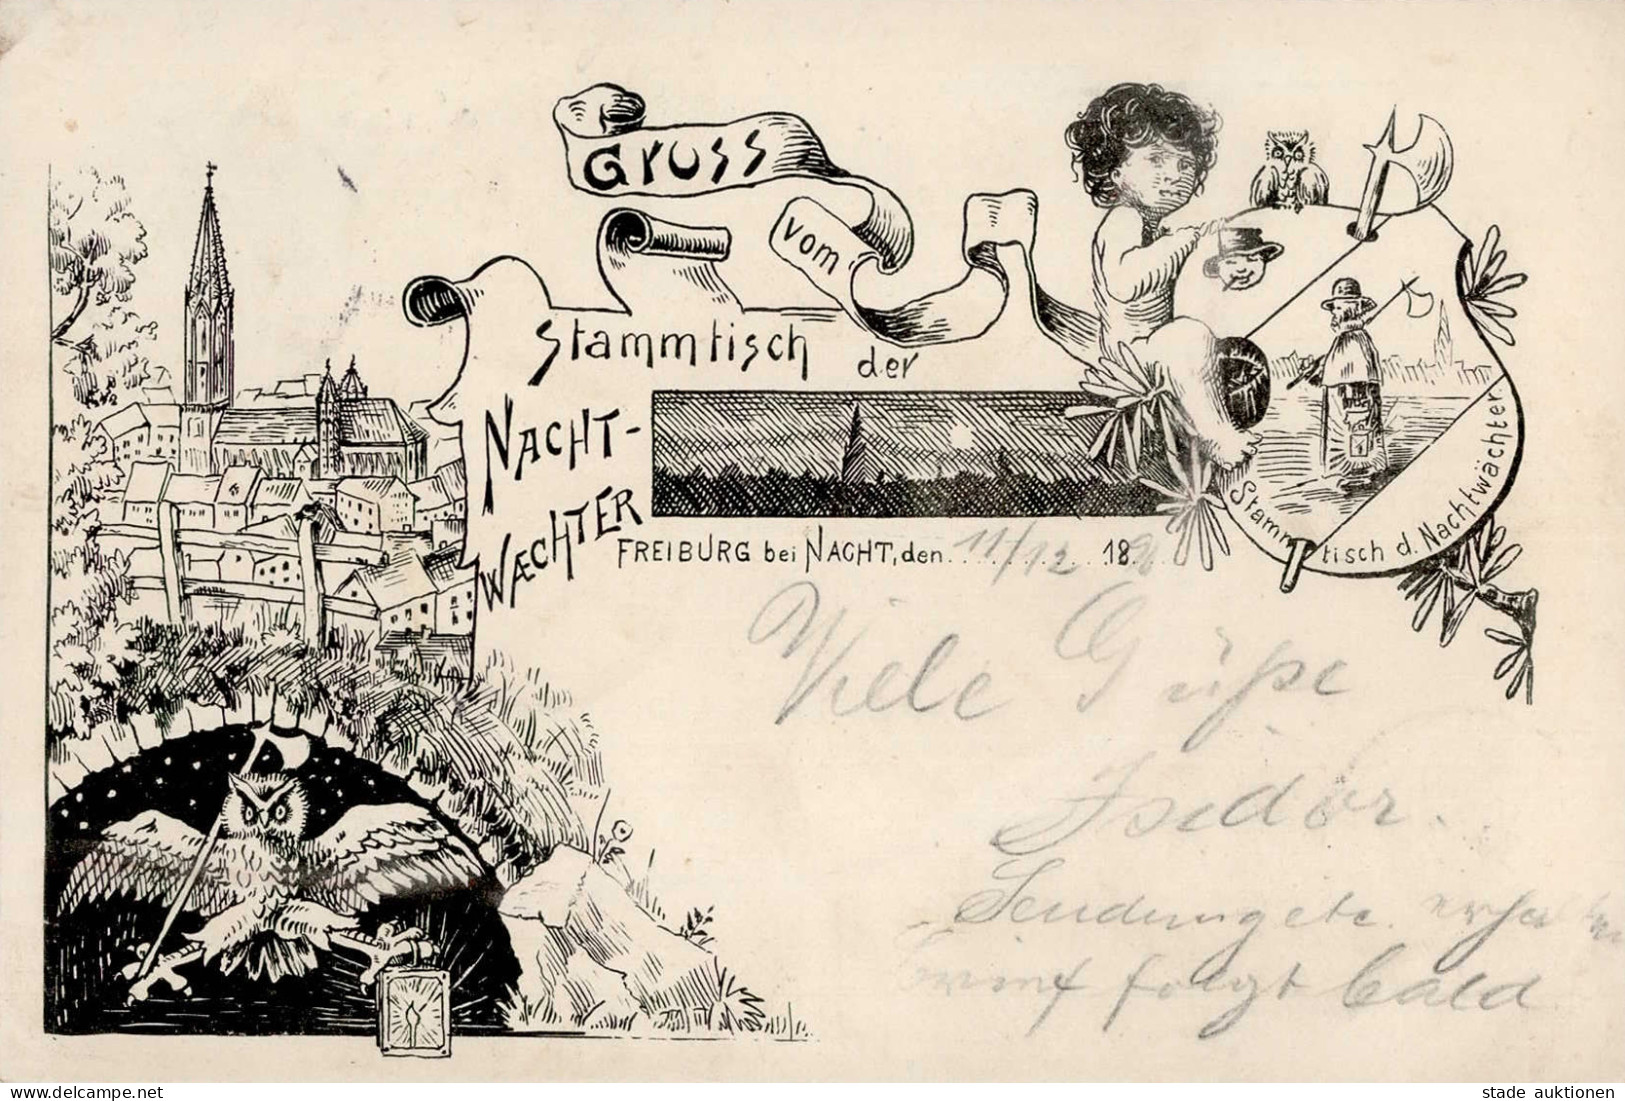 Gruss
vom
Stammtisch der
NACHT-
WÆCHTER
FREIBURG bei NACHT, den 11/12 189
Stammtisch d. Nachtwächter
Viele Grüße
Isidor.
Sendung etc. erhalten
Brief folgt bald
www.delcampe.net
stade auktionen